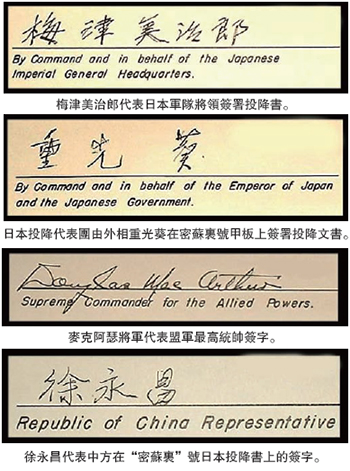 梅津美治郎
By Command and in behalf of the Japanese
Imperial General Headquarters.
梅津美治郎代表日本軍隊將領簽署投降書。
重光葵
By Command and in behalf of the Emperor of Japan
and the Japanese Government.
日本投降代表團由外相重光葵在密蘇裏號甲板上簽署投降文書。
Douglas MacArthur
Supreme Commander for the Allied Powers.
麥克阿瑟將軍代表盟軍最高統帥簽字。
徐永昌
Republic of China Representative
徐永昌代表中方在“密蘇裏”號日本投降書上的簽字。